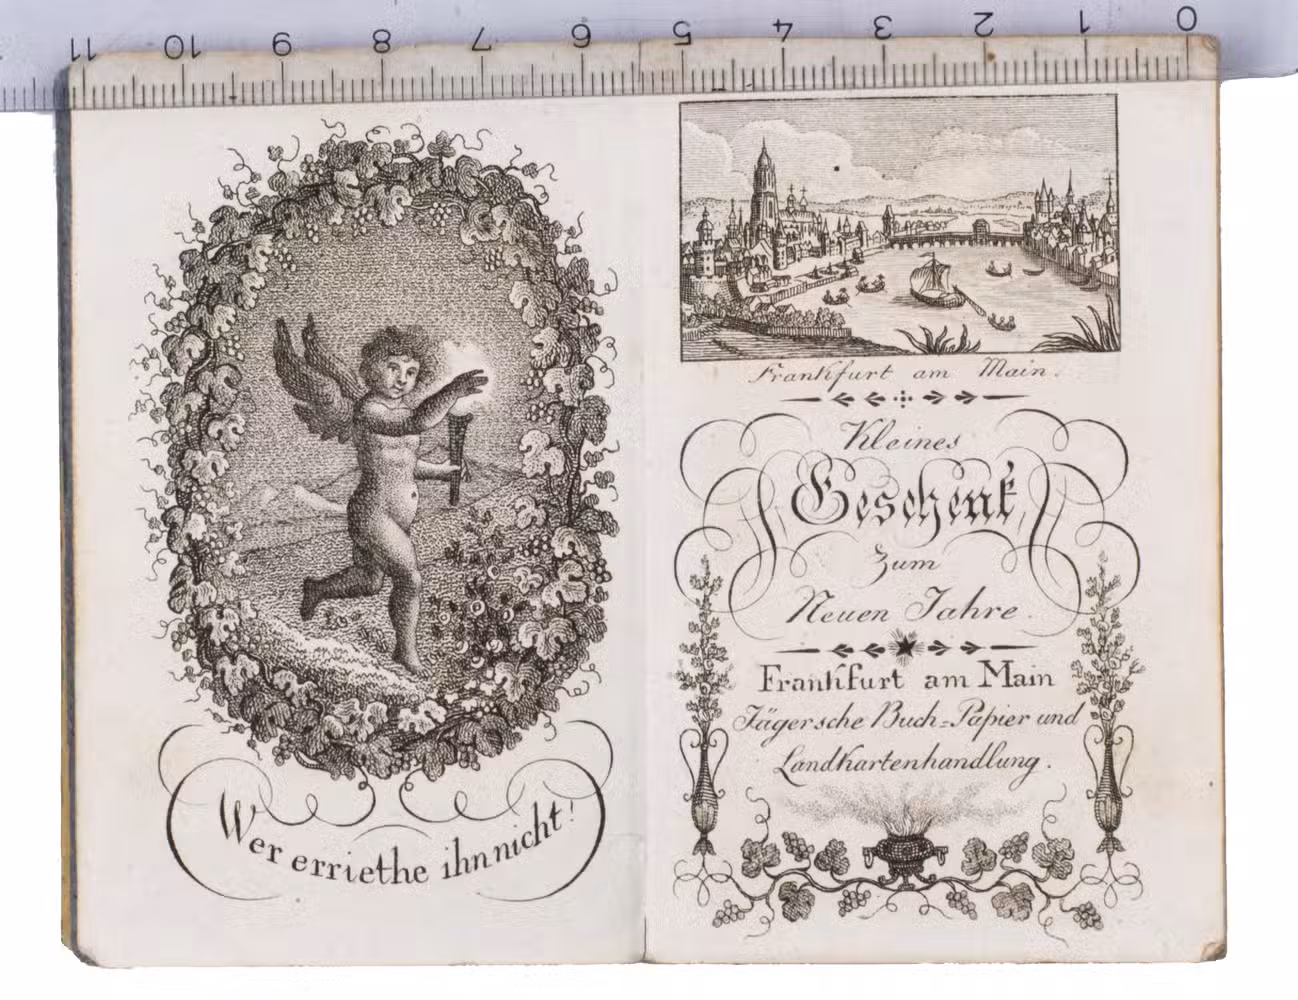 11 10 9 8 7 6 5 4 3 2 1 0
Wer erriethe ihn nicht!
Frankfurt am Main.
Kleines
Geschenk
Zum
Neuen Jahre.
Frankfurt am Main
Jägersche Buch=Papier und
Landkartenhandlung.